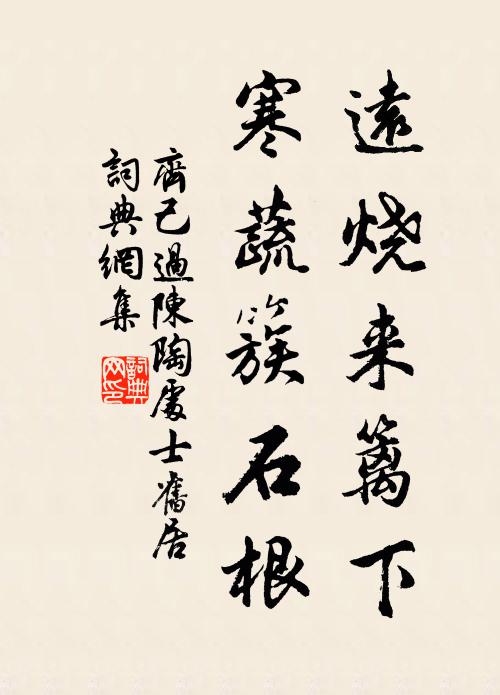 遠烧来篱下
寒蔬簇石根
齊己過陳陶處士舊居
詞典網集
詞典网印